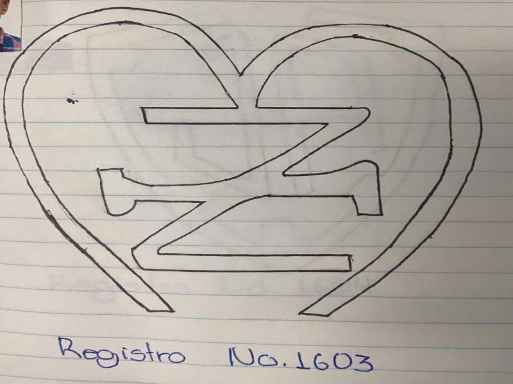 Registro No. 1603